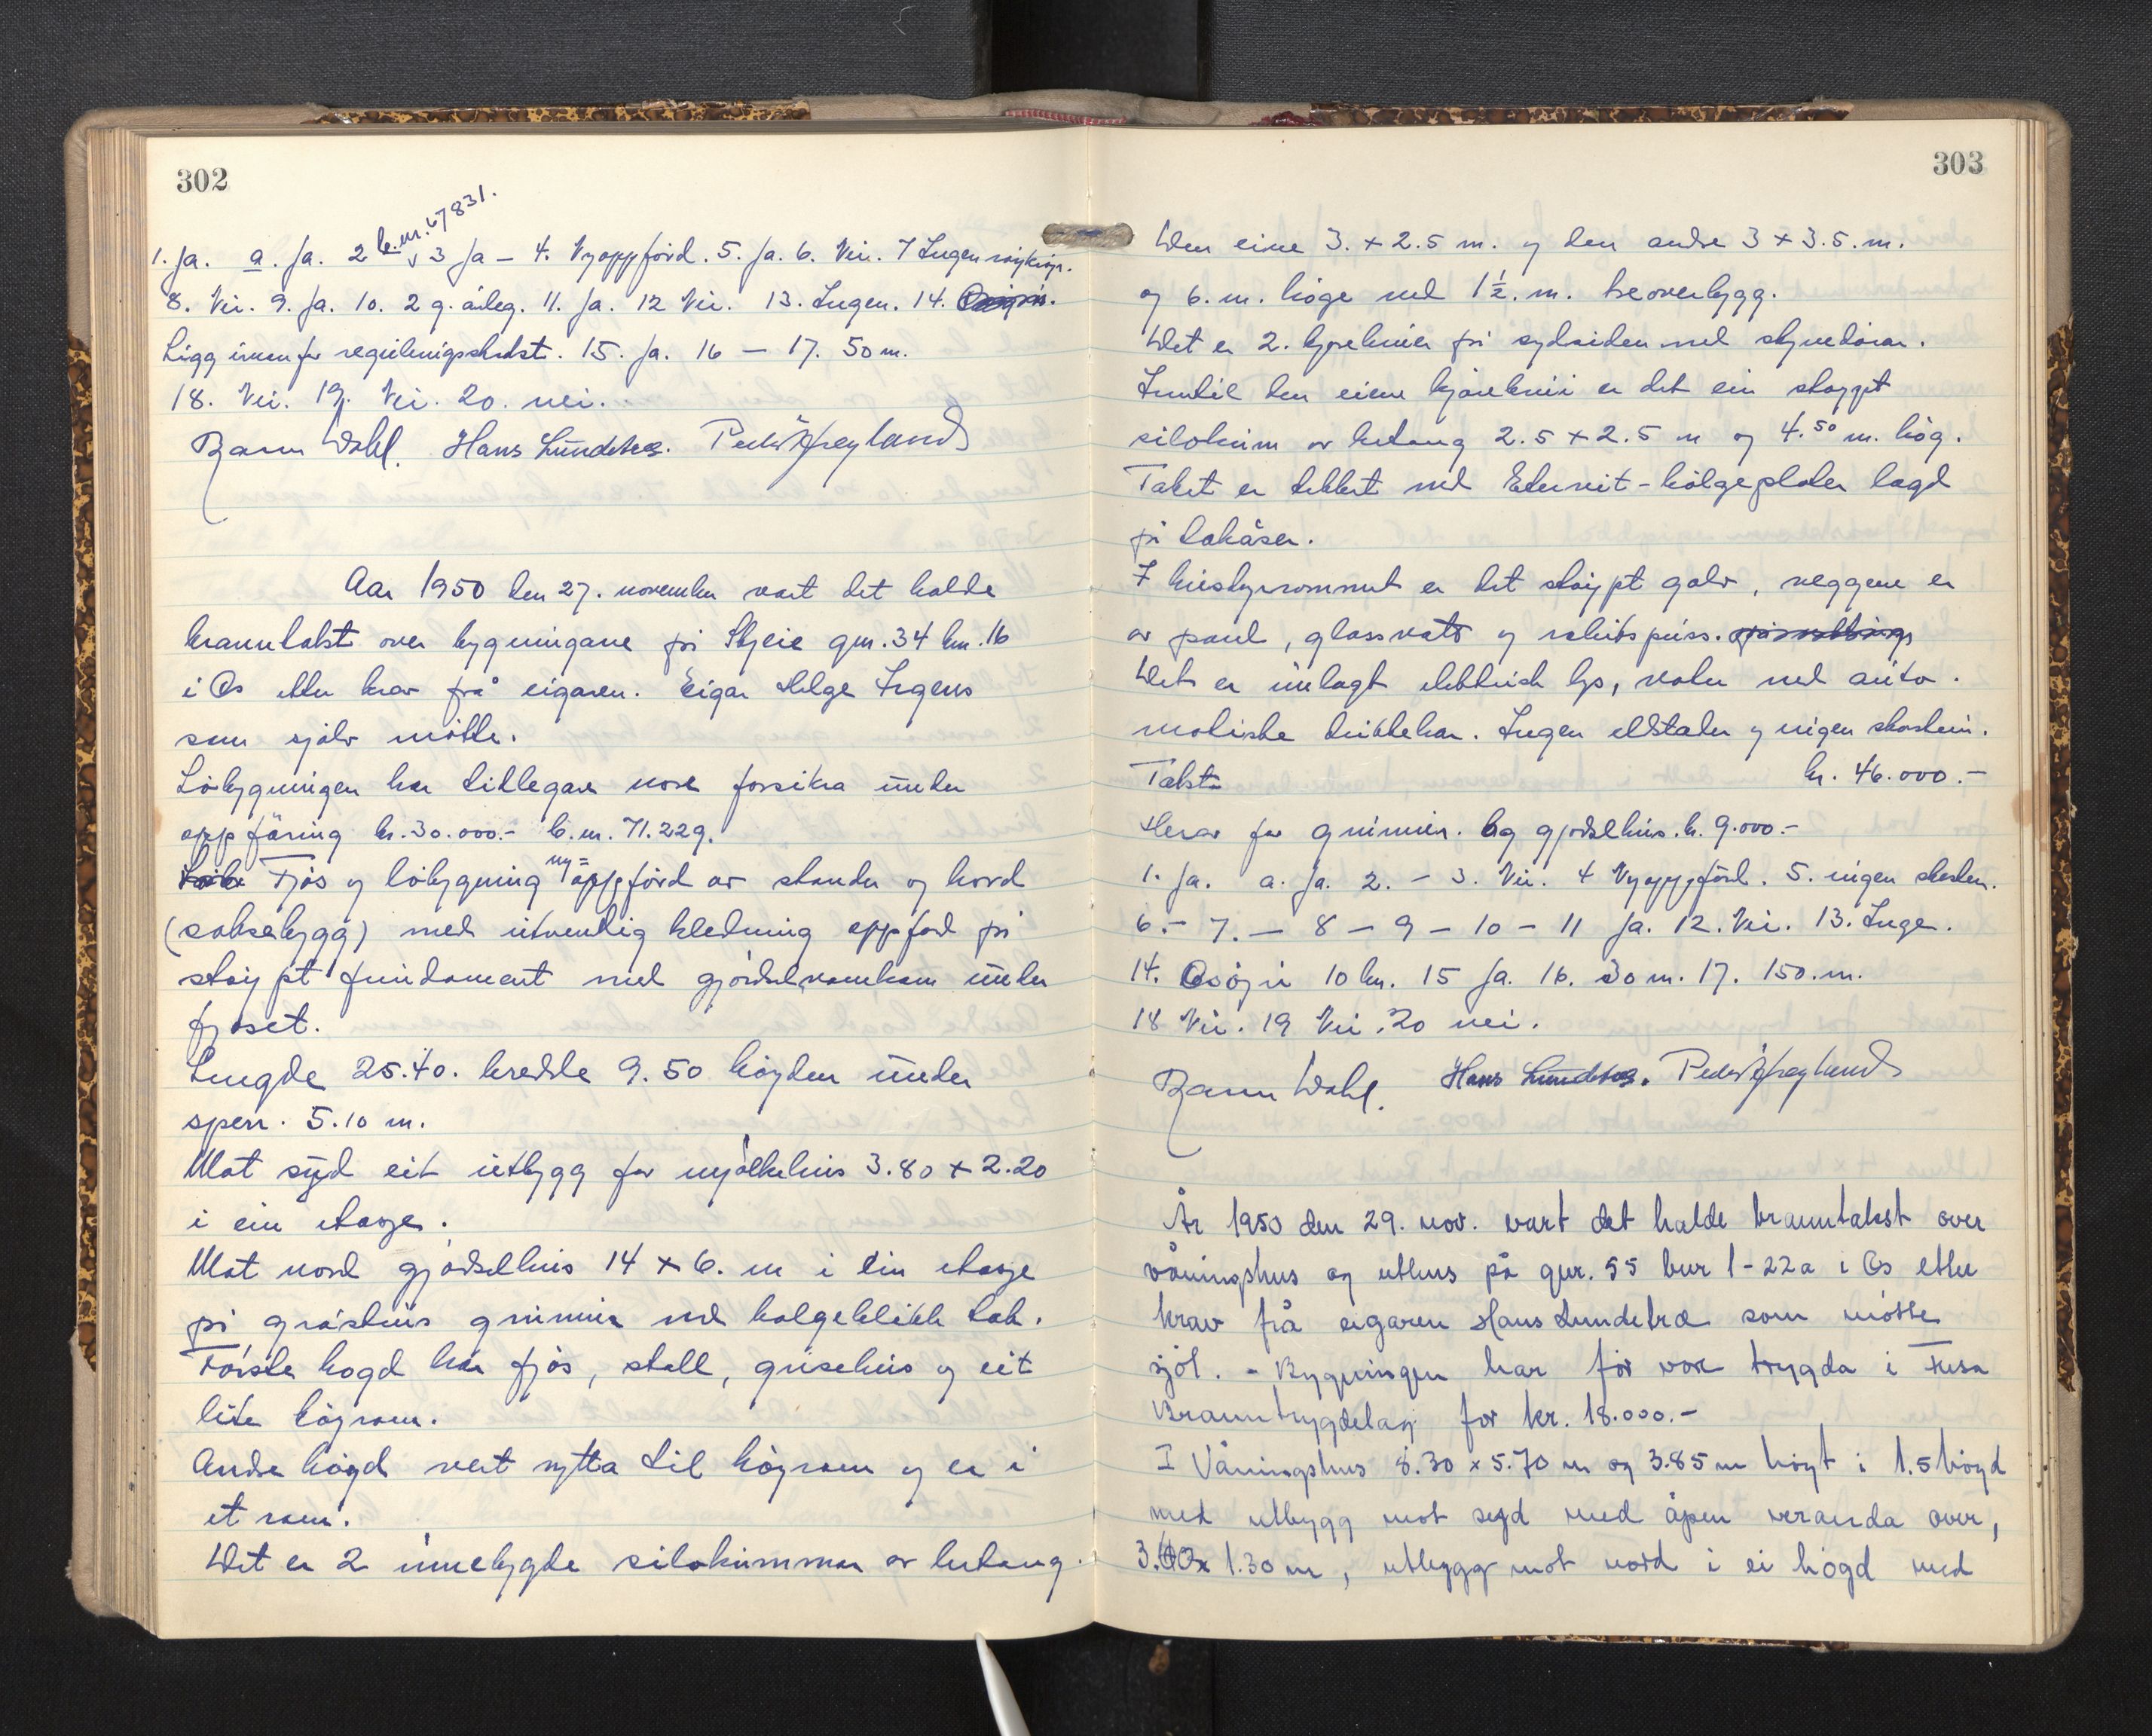 302
b.nr. 67831.
1. Ja. a. Ja. 2 3 Ja – 4. Nyoppförd. 5. Ja. 6. Nei. 7 Ingen
8. Nei. 9. Ja. 10. 2 g. årleg. 11. Ja. 12 Nei. 13. Ingen. 14.
Ligg innanfor 15. Ja. 16 — 17. 50 m.
18. Nei. 19. Nei. 20. nei.
Wahl. Hans Lundetræ. Peder
Aar 1950 den 27. november vart det halde
branntakst over bygningane på Skjeie gnr. 34 bnr. 16
i Os etter krav frå eigaren. Eigar Helge Irgens
som sjølv møtte.
Löbygningen har tidlegare vore forsikra under
oppføring kr. 30.000.- b.nr. 71.229.
Fjös og löbygning ny= oppförd av stender og bord
(saksebygg) med utvendig kledning oppförd på
støypt fundament med gjödselvamkom under
fjoset.
Lengde 25.40. bredde 9.50 høyden under
sperr. 5.10 m.
Mot syd eit utbygg for mjölkehus 3.80 x 2.20
i ein etasje.
Mot nord gjödselhus 14 x 6. m i ein etasje
på gråsteins grunnmur med bølgeblikk tak.
Første högd har fjös, stall, grisehus og eit
lite höyrom.
Andre högd vert nytta til höyrom og er i
et rom.
Det er 2 innebygde silokummar av betong.
303
Den eine 3. x 2.5 m. og den andre 3 x 3.5. m.
og 6. m. høge med 1½. m. treoverbygg.
Det er 2. kjørebruer på sydsiden med skyvedörar.
Inntil den eine kjørebrui er det ein støypt
silokum av betong 2.5 x 2.5 m og 4.50 m. høg.
Taket er dekket med Eternit-bölgeplater lagd
på takåser.
I husdyrrommet er det støypt golv, veggene er
av panel, glassvatt og rabitspuss.
Det er innlagt elektrisk lys, vatn med auto-
matiske drikkekar. Ingen eldstader og ingen skorstein.
Takst kr. 46.000.-
Herav for grunnmur. og gjødselhus. kr. 9.000.-
1. Ja. a. Ja. 2. – 3. Nei. 4 Nyoppförd. 5. ingen skorsten.
6. – 7. – 8 – 9 – 10 – 11 Ja. 12. Nei. 13. Inge.
14. Osöyri 10 km. 15 Ja. 16. 30 m. 17. 150. m.
18 Nei. 19 Nei. 20 nei.
Wahl. Hans Lundetræ. Peder
År 1950 den 29. nov. vart det halde branntakst over
våningshus og uthus på gnr. 55 bnr 1-22a i Os etter
krav frå eigaren Hans Lundetræ som møtte
sjöl. - Bygningen har för vore trygda i Fusa
Branntrygdelag for kr. 18.000.-
I Våningshus 8.30 x 5.70 m og 3.85 m höyt i 1.5 högd
med utbygg mot syd med åpen veranda over,
3.40x 1.30 m, utbygg mot nord i ei högd med